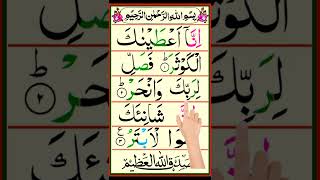 بِسْمِ اللهِ الرَّحْمٰنِ الرَّحِيْمِ
اِنَّاۤ اَعْطَيْنٰكَ
الْكَوْثَرَ ؕ ۱ فَصَلِّ
لِرَبِّكَ وَانْحَرْ ؕ ۲
شَانِئَكَ
الْاَبْتَرُ ۳ ع
صدق الله العظيم